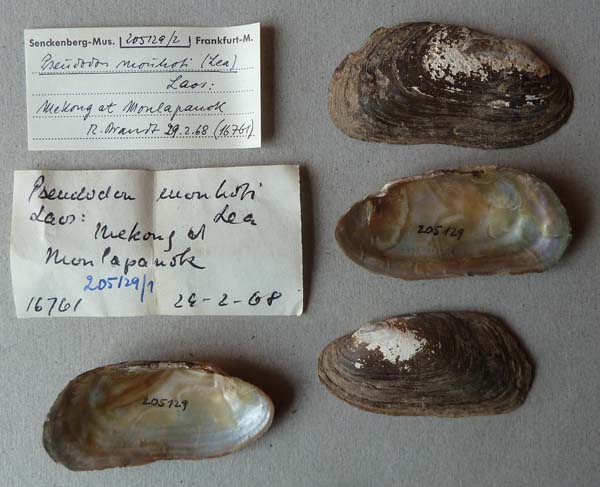 Senckenberg-Mus. 205129/2 Frankfurt-M.
Pseudodon mouhoti (Lea)
Laos:
Mekong at Monlapamok
R. Brandt 29.2.68 (16761)
Pseudodon mouhoti
Laos: Lea
Mekong at
Monlapamok
205129/1
16761 29-2-68
205129
205129